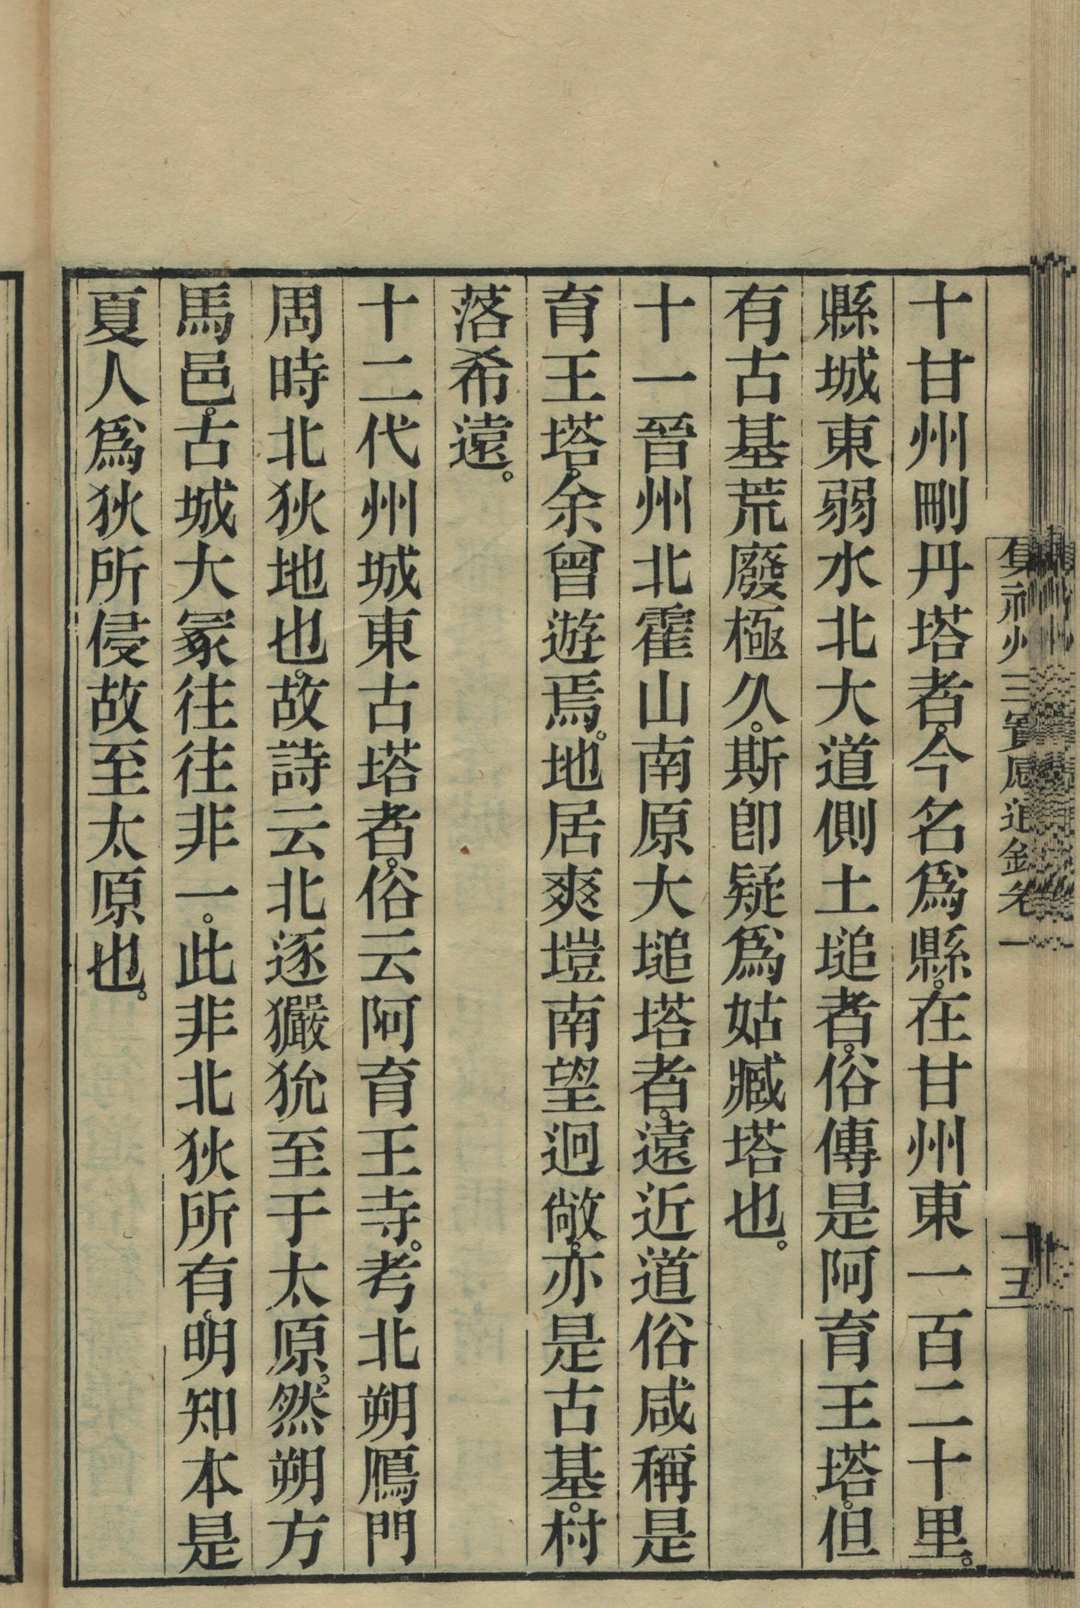 十甘州刪丹塔者。今名爲縣。在甘州東一百二十里。
縣城東弱水北大道側土塠者。俗傳是阿育王塔。但
有古基荒廢極久。斯卽疑爲姑臧塔也。
十一晉州北霍山南原大塠塔者。遠近道俗咸稱是
育王塔。余曾遊焉。地居爽塏南望迥敞。亦是古基。村
落希遠。
十二代州城東古塔者。俗云阿育王寺。考北朔鴈門
周時北狄地也。故詩云北逐玁狁至于太原。然朔方
馬邑。古城大冢往往非一。此非北狄所有。明知本是
夏人爲狄所侵故至太原也。
集神州三寶感通錄卷一
十五